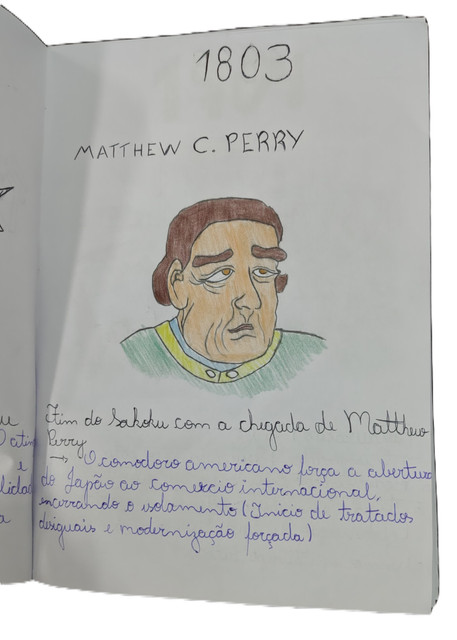 1803
MATTHEW C. PERRY
Fim do Sakoku com a chegada de Matthew
Perry
→ O comodoro americano força a abertura
do Japão ao comercio internacional,
encerrando o isolamento (Início de tratados
desiguais e modernização forçada)